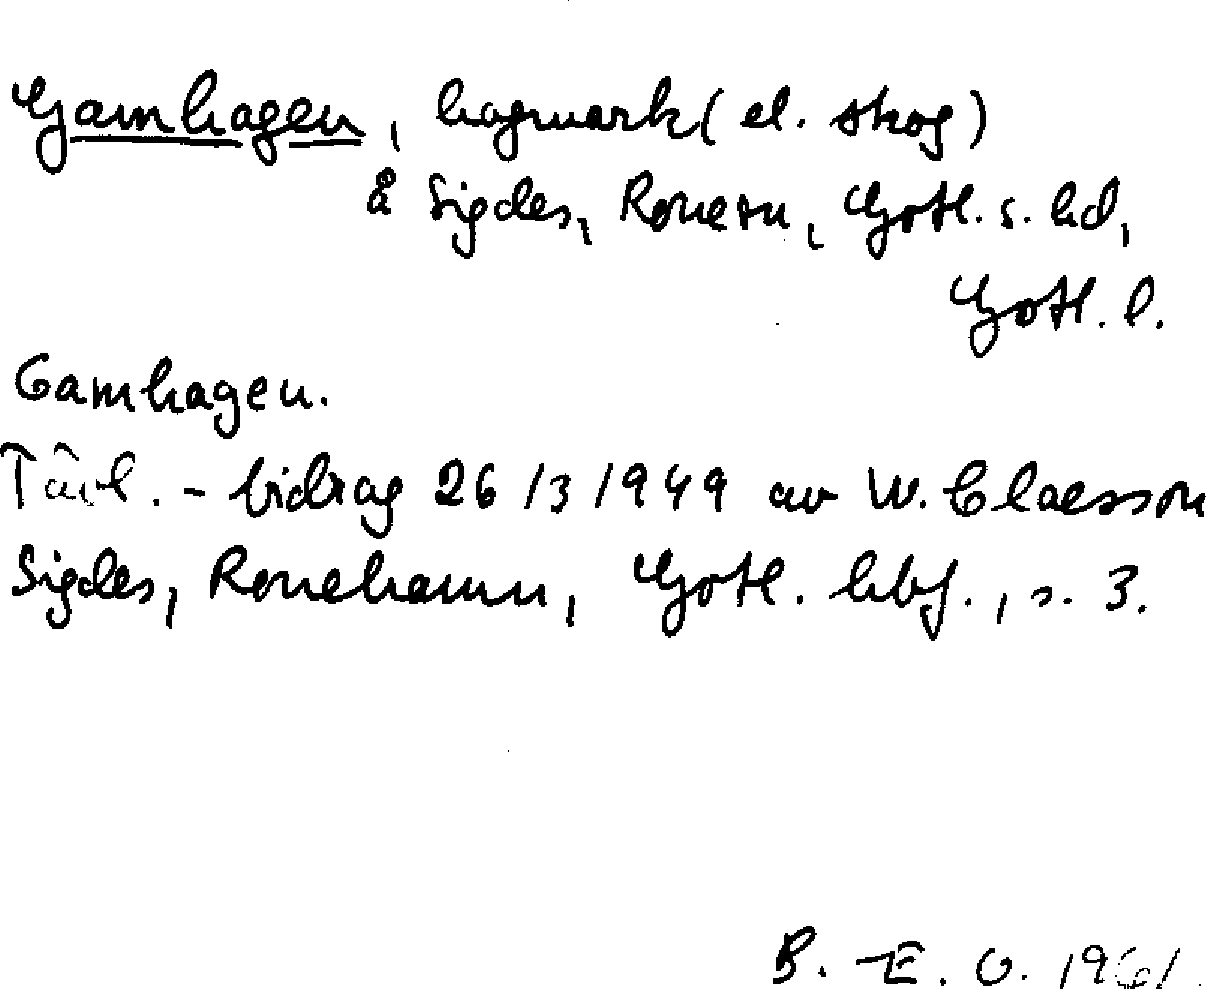 Gamhagen, hagmark (el. skog)
å Sigdes, Rone sn, Gotl. s. hd,
Gotl. l.
Gamhagen.
Tävl. - bidrag 26/3 1949 av W. Claesson
Sigdes, Ronehamn, Gotl. hbf., s. 3.
B. E. O. 1961.